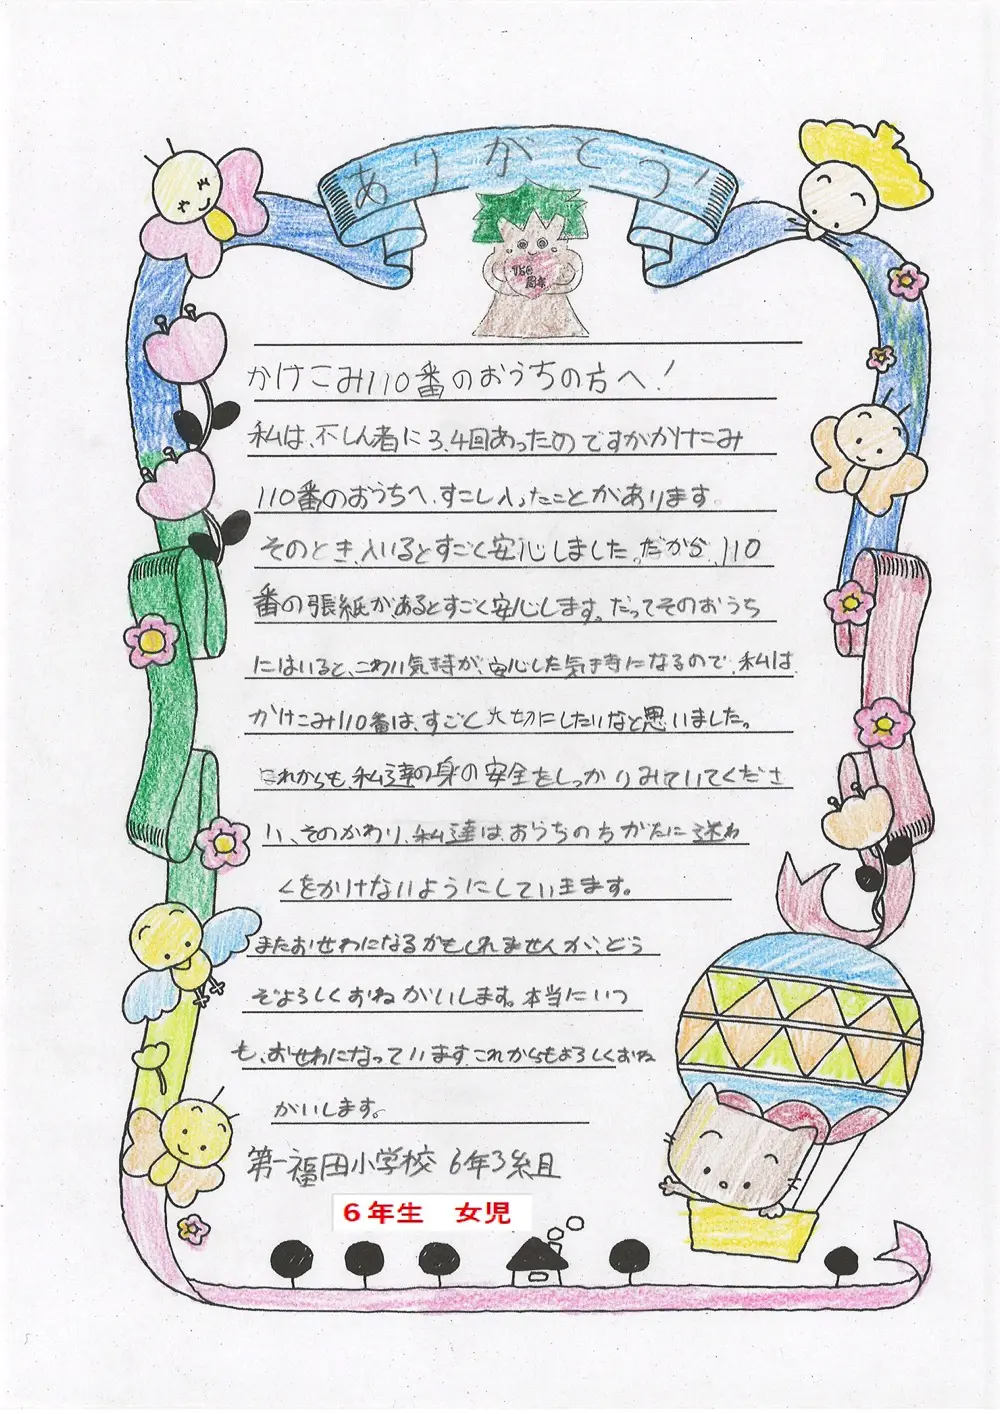 ありがとう!
150
周年
かけこみ110番のおうちの方へ!
私は、不しん者に3,4回あったのですがかけこみ
110番のおうちへ、すこし入ったことがあります。
そのとき、入いるとすごく安心しました。だから、110
番の張紙があるとすごく安心します。だってそのおうち
にはいると、こわい気持が、安心した気持になるので、私は、
かけこみ110番は、すごく大切にしたいなと思いました。
これからも、私達の身の安全をしっかりみていてくださ
い、そのかわり、私達は、おうちの方がたに迷わ
くをかけないようにしていきます。
またおせわになるかもしれませんが、どう
ぞよろしくおねがいします。本当にいつ
も、おせわになっています。これからもよろしくおね
がいします。
第一福田小学校 6年3組
6年生 女児